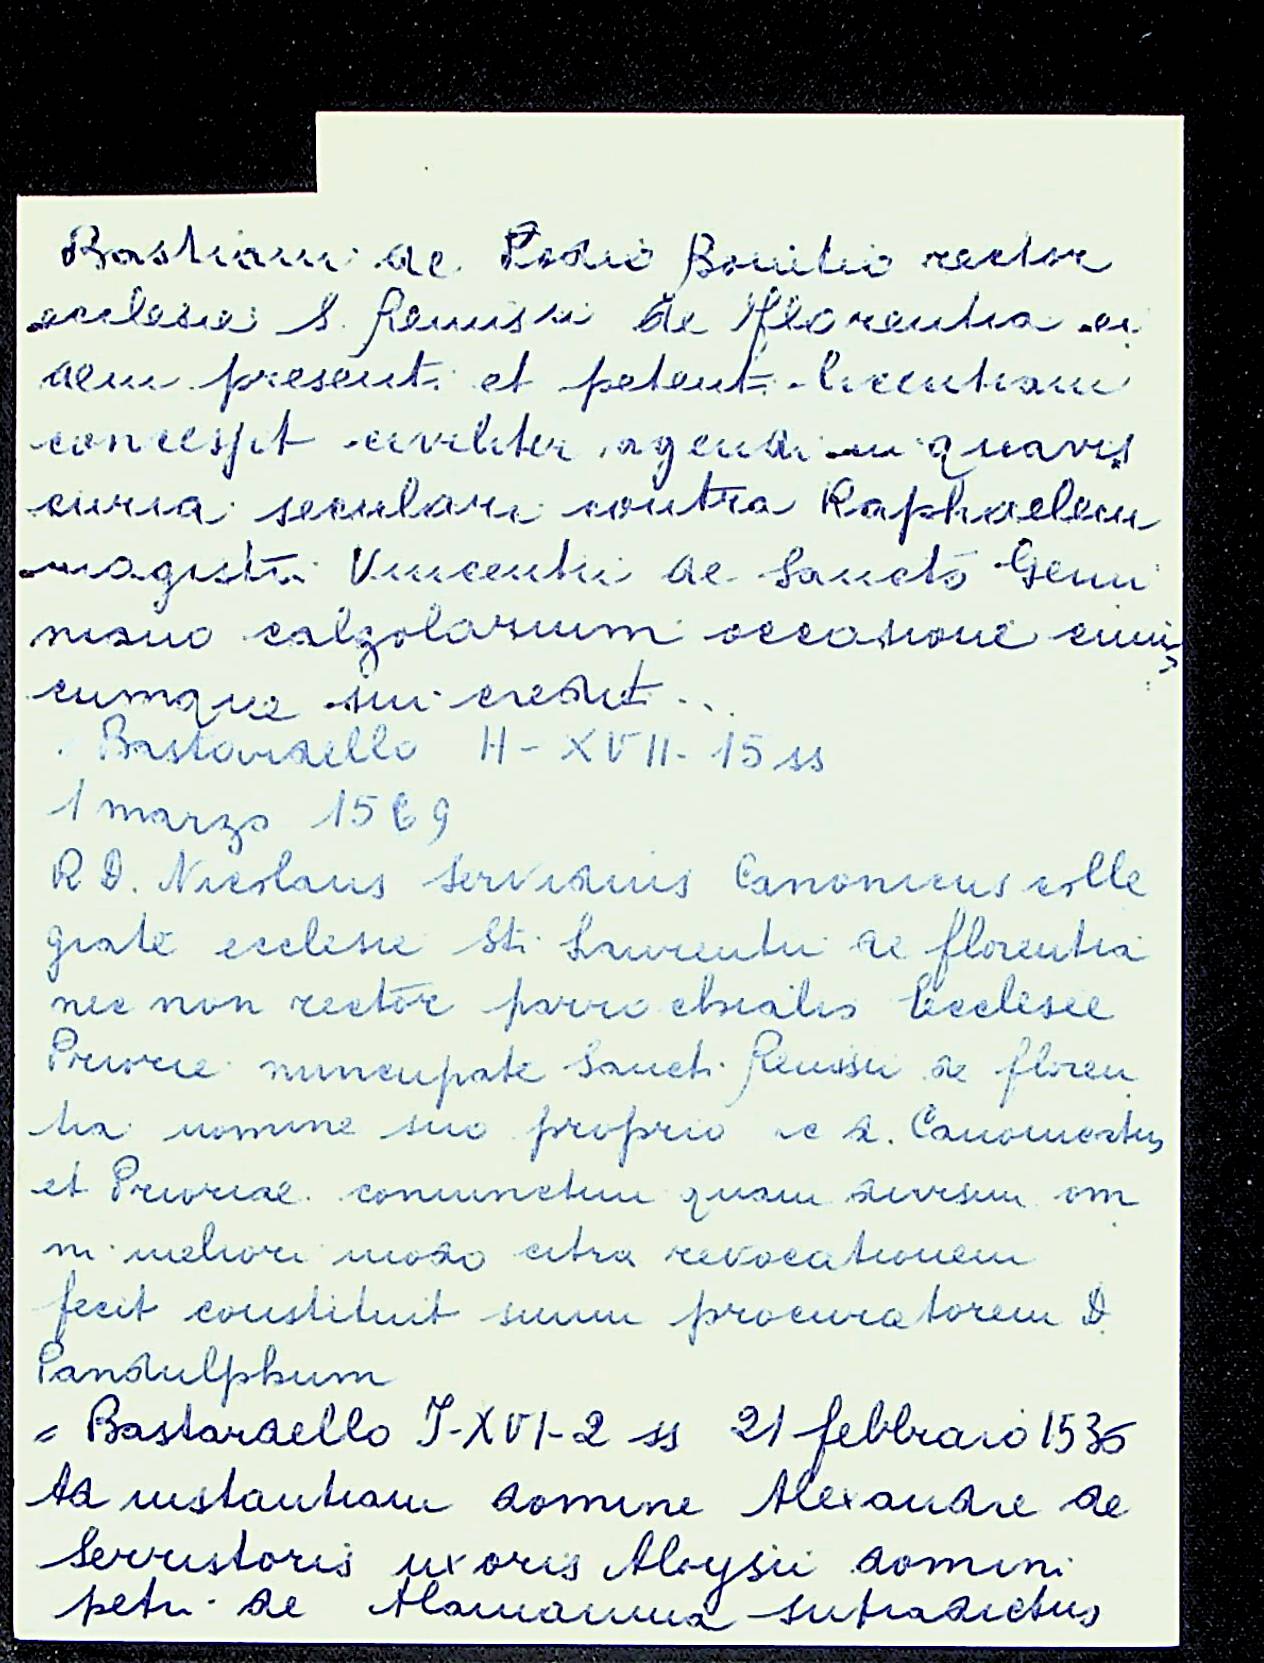 Bastiani de Podio Bonitio rector
ecclesie S. Remisii de Florentia ei
dem presenti et petenti licentiam
concessit civiliter agendi in quavis
curia seculari contra Raphaelem
magistri Vincentii de Sancto Gemi
niano calzolarium occasione cuius
cumque sui crediti...
Bastardello H-XVII-15 ss
1 marzo 1569
R D. Nicolaus Servidius Canonicus colle
giate ecclesie Sti Laurentii de florentia
nec non rector parrochialis Ecclesie
Priorie nuncupate Sancti Remisii de floren
tia nomine suo proprio ac d. Canonicatus
et Prioriae coniunctim quam divisim om
ni meliori modo citra revocationem
fecit constituit suum procuratorem D.
Pandulphum
= Bastardello I-XVI-2 ss 21 febbraio 1536
Ad instantiam domine Alexandre de
Serristoris uxoris Aloysii domini
petri de Alamanna sutradictus